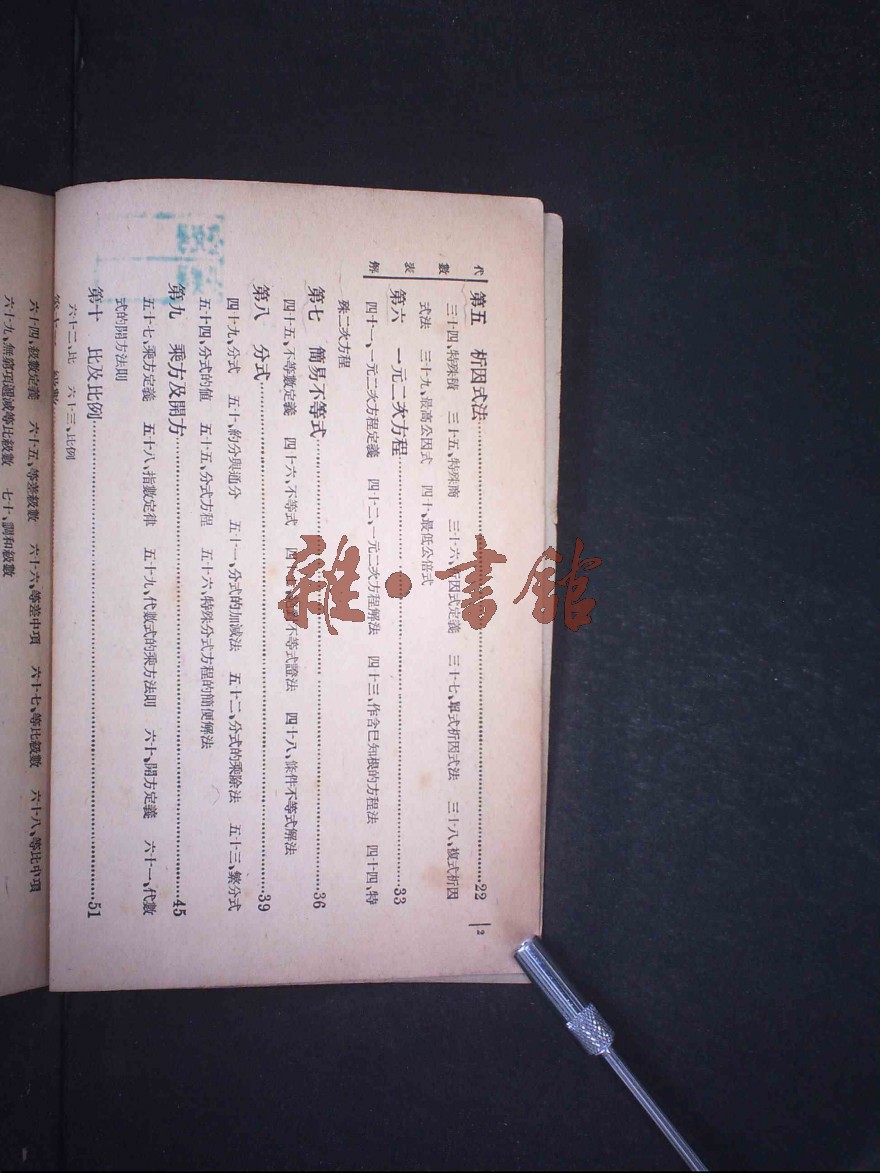 代數表解
2
第五 析因式法 22
三十四、特殊積 三十五、特殊商 三十六、析因式定義 三十七、單式析因式法 三十八、複式析因
式法 三十九、最高公因式 四十、最低公倍式
第六 一元二次方程 33
四十一、一元二次方程定義 四十二、一元二次方程解法 四十三、作含已知根的方程法 四十四、特
殊二次方程
第七 簡易不等式 36
四十五、不等數定義 四十六、不等式 不等式證法 四十八、條件不等式解法
第八 分式 39
四十九、分式 五十、約分與通分 五十一、分式的加減法 五十二、分式的乘除法 五十三、繁分式
五十四、分式的值 五十五、分式方程 五十六、特殊分式方程的簡便解法
第九 乘方及開方 45
五十七、乘方定義 五十八、指數定律 五十九、代數式的乘方法則 六十、開方定義 六十一、代數
式的開方法則
第十 比及比例 51
六十二、比 六十三、比例
六十四、級數定義 六十五、等差級數 六十六、等差中項 六十七、等比級數 六十八、等比中項
六十九、無窮項遞減等比級數 七十、調和級數
雜·書館